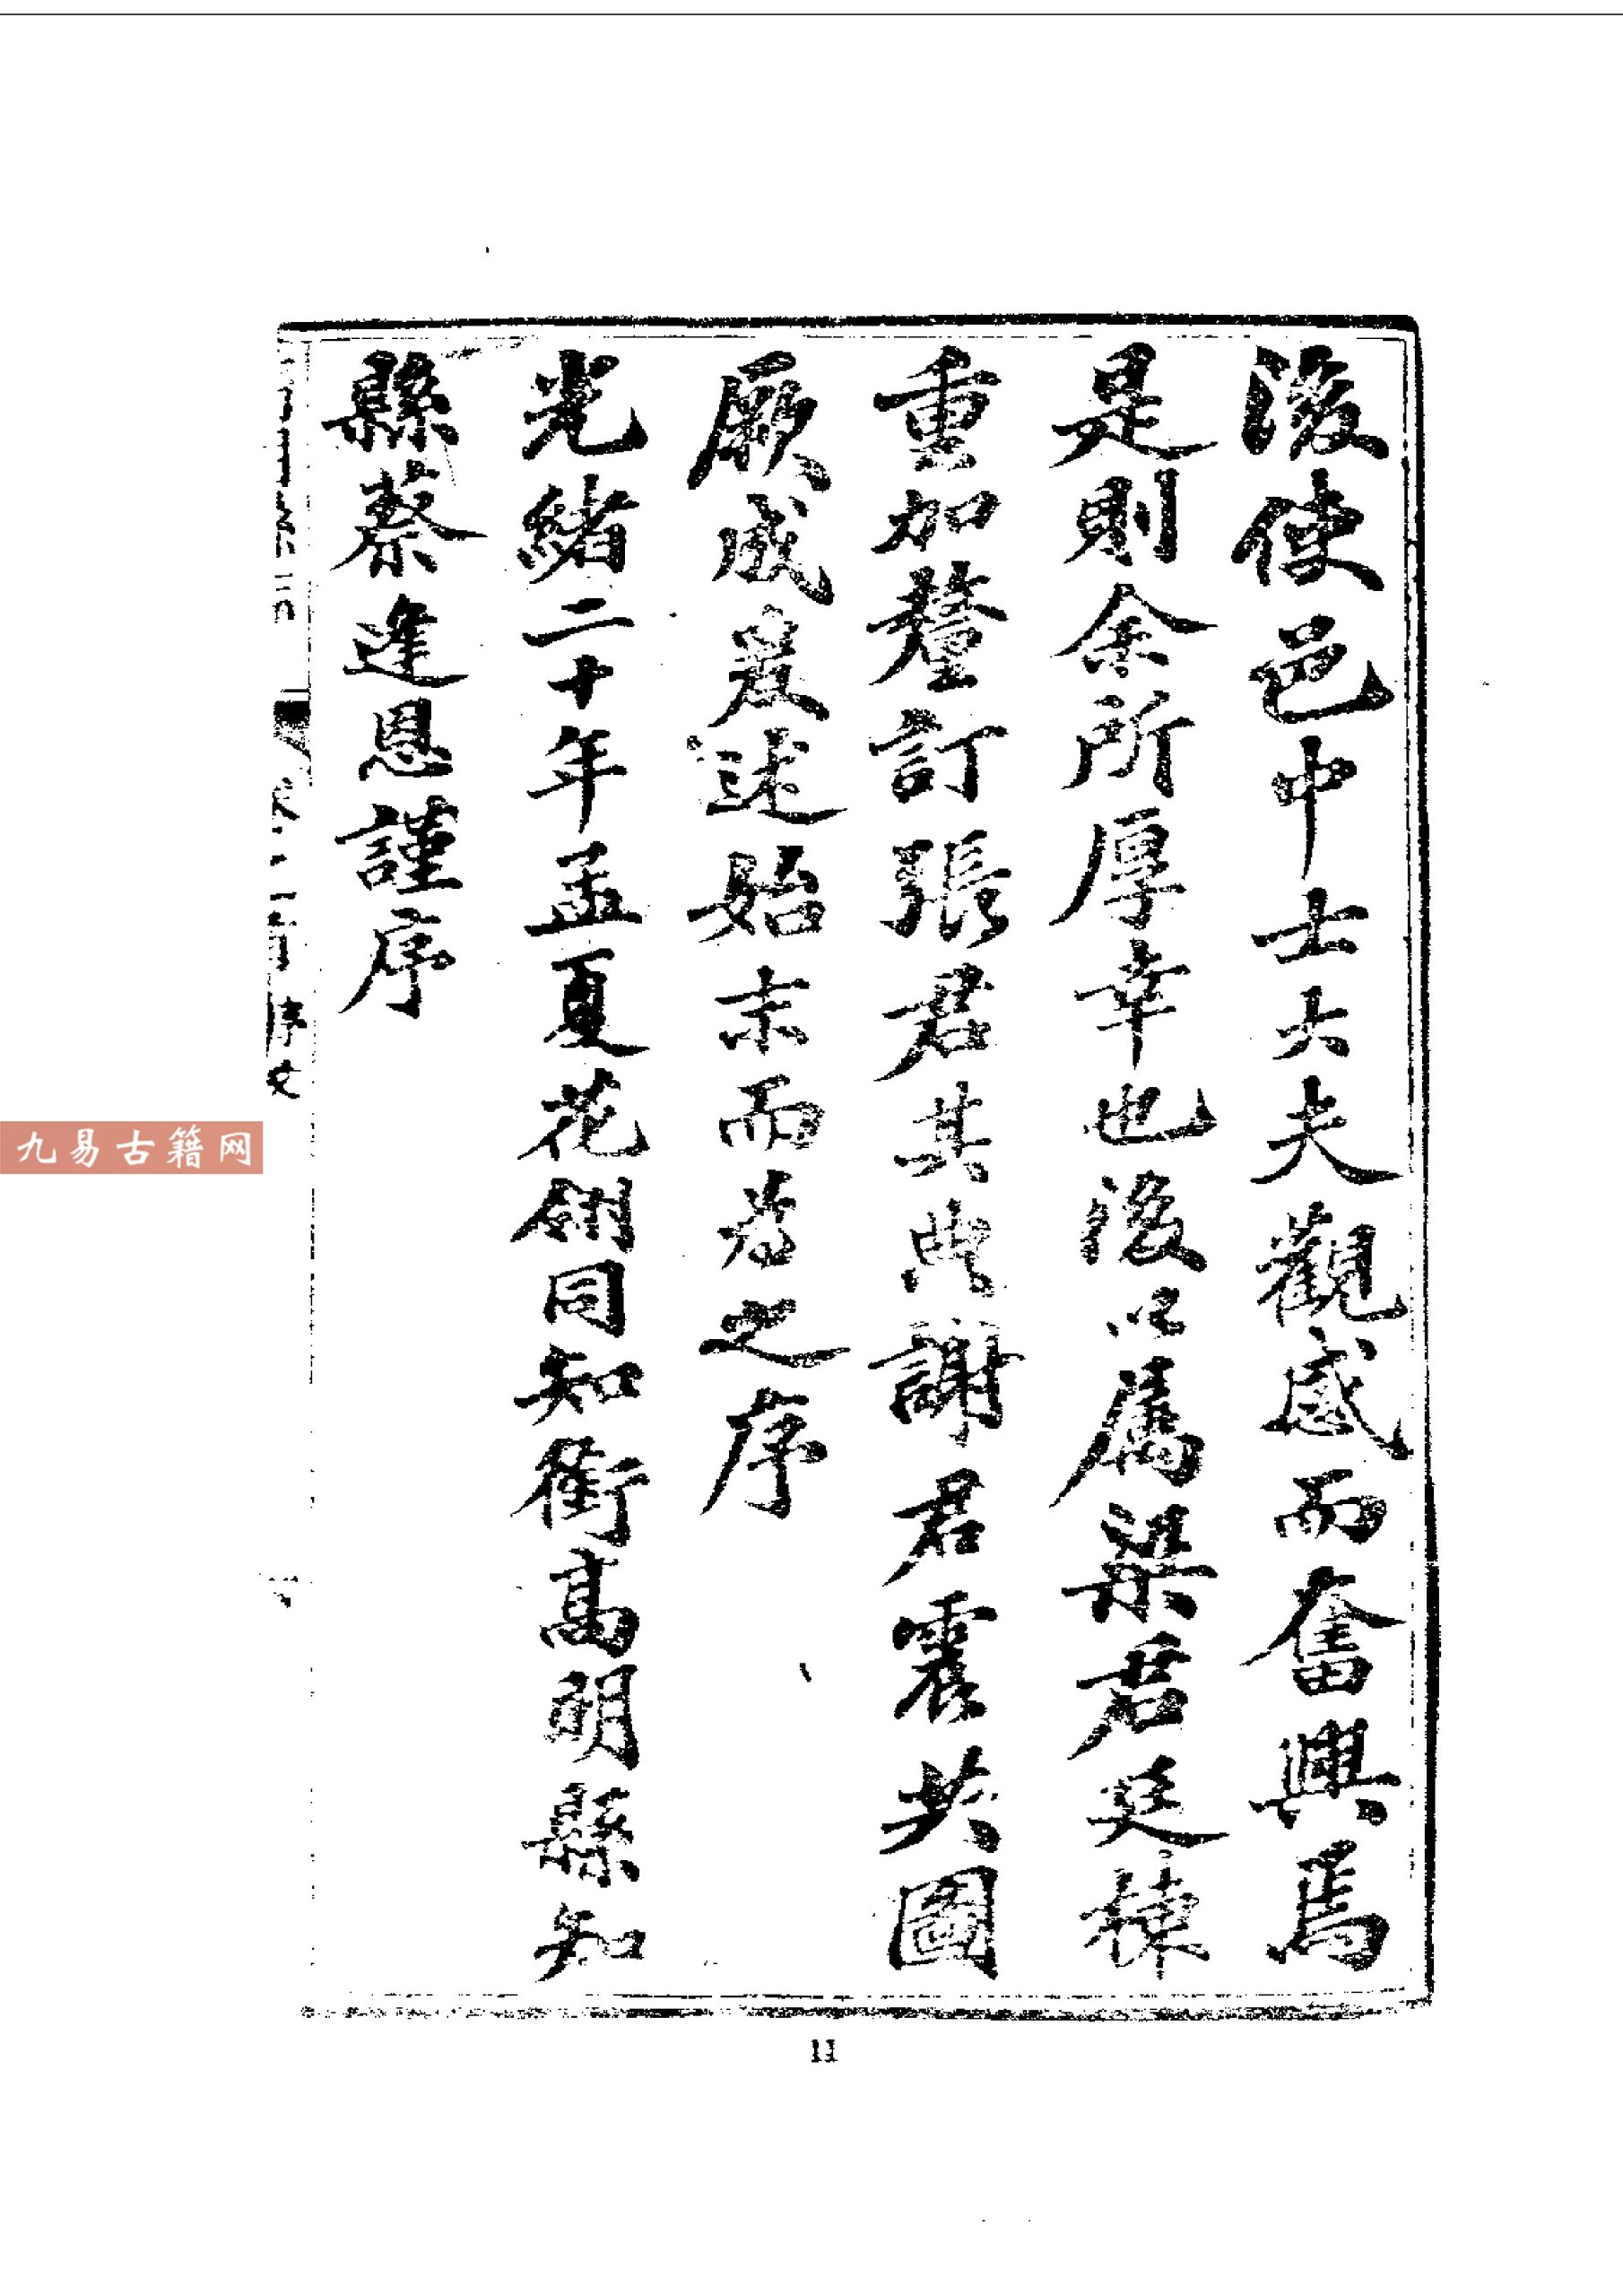 後使邑中士大夫觀感而奮興焉
是則余所厚幸也後以属梁君廷棟
重加釐訂張君其典謝君震共圖
厥成爰述始末而為之序
光緒二十年孟夏花翎同知銜高明縣知
縣蔡逢恩謹序
序文
九易古籍网
11